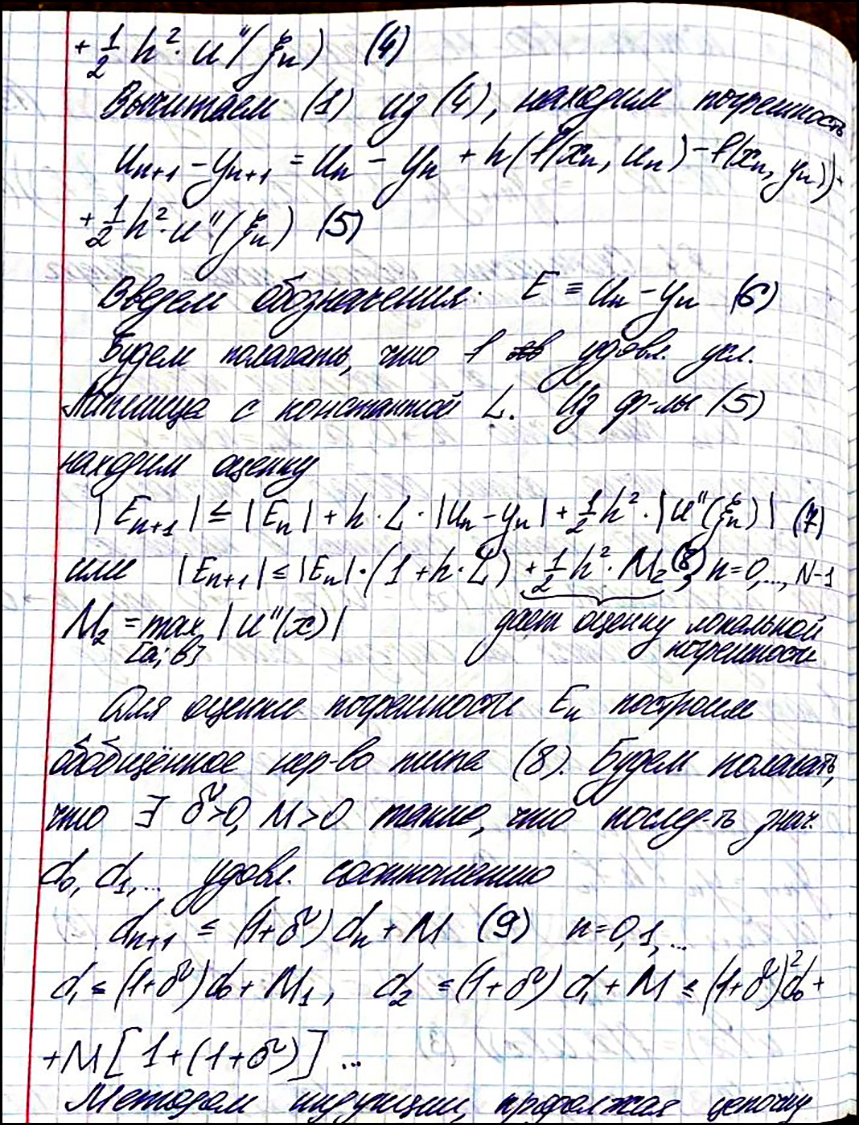 + 1/2 h²·u''(ξₙ) (4)
Вычитаем (1) из (4), находим погрешность
uₙ₊₁ - yₙ₊₁ = uₙ - yₙ + h(f(xₙ, uₙ) - f(xₙ, yₙ)) +
+ 1/2 h²·u''(ξₙ) (5)
Введем обозначения: E ≡ uₙ - yₙ (6)
Будем полагать, что f удовл. усл.
Липшица с константой L. Из ф-лы (5)
находим оценку
|Eₙ₊₁| ≤ |Eₙ| + h·L·|uₙ - yₙ| + 1/2 h²·|u''(ξₙ)| (7)
или |Eₙ₊₁| ≤ |Eₙ|·(1 + h·L) + 1/2 h²·M₂ (8), n = 0,..., N-1
M₂ = max |u''(x)| дает оценку локальной
[a; b] погрешности
Для оценки погрешности Eₙ построим
обобщённое нер-во типа (8). Будем полагать,
что ∃ δ>0, M>0 такие, что послед-ть знач.
d₀, d₁,... удовл. соотношению
dₙ₊₁ ≤ (1+δ) dₙ + M (9) n = 0,1,...
d₁ ≤ (1+δ)d₀ + M₁, d₂ ≤ (1+δ) d₁ + M ≤ (1+δ)²d₀ +
+ M[1 + (1+δ)] ...
Методом индукции, продолжая цепочку